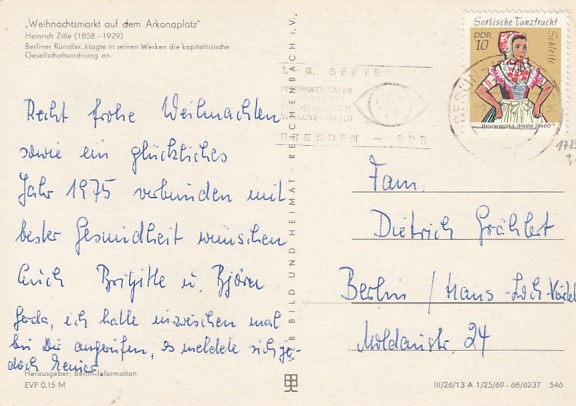 „Weihnachtsmarkt auf dem Arkonaplatz"
Heinrich Zille (1858 – 1929)
Berliner Künstler, klagte in seinen Werken die kapitalistische
Gesellschaftsordnung an.
Recht frohe Weihnachten
sowie ein glückliches
Jahr 1975 verbunden mit
bester Gesundheit wünschen
Euch Brigitte u. Björn
Gerda, ich hatte inzwischen mal
bei Dir angerufen, es meldete sich je-
doch
Herausgeber: Berlin-Information
EVP 0.15 M
BILD UND HEIMAT · REICHENBACH i. V.
Sorbische Tanztracht
Schleife
DDR
10
SEPTEM
DRESDEN — DDR
Fam.
Dietrich Grählert
Berlin / Hans-Loch-Viertel
Moldaustr. 24
III/26/13 A 1/25/69 - 68/6237 546